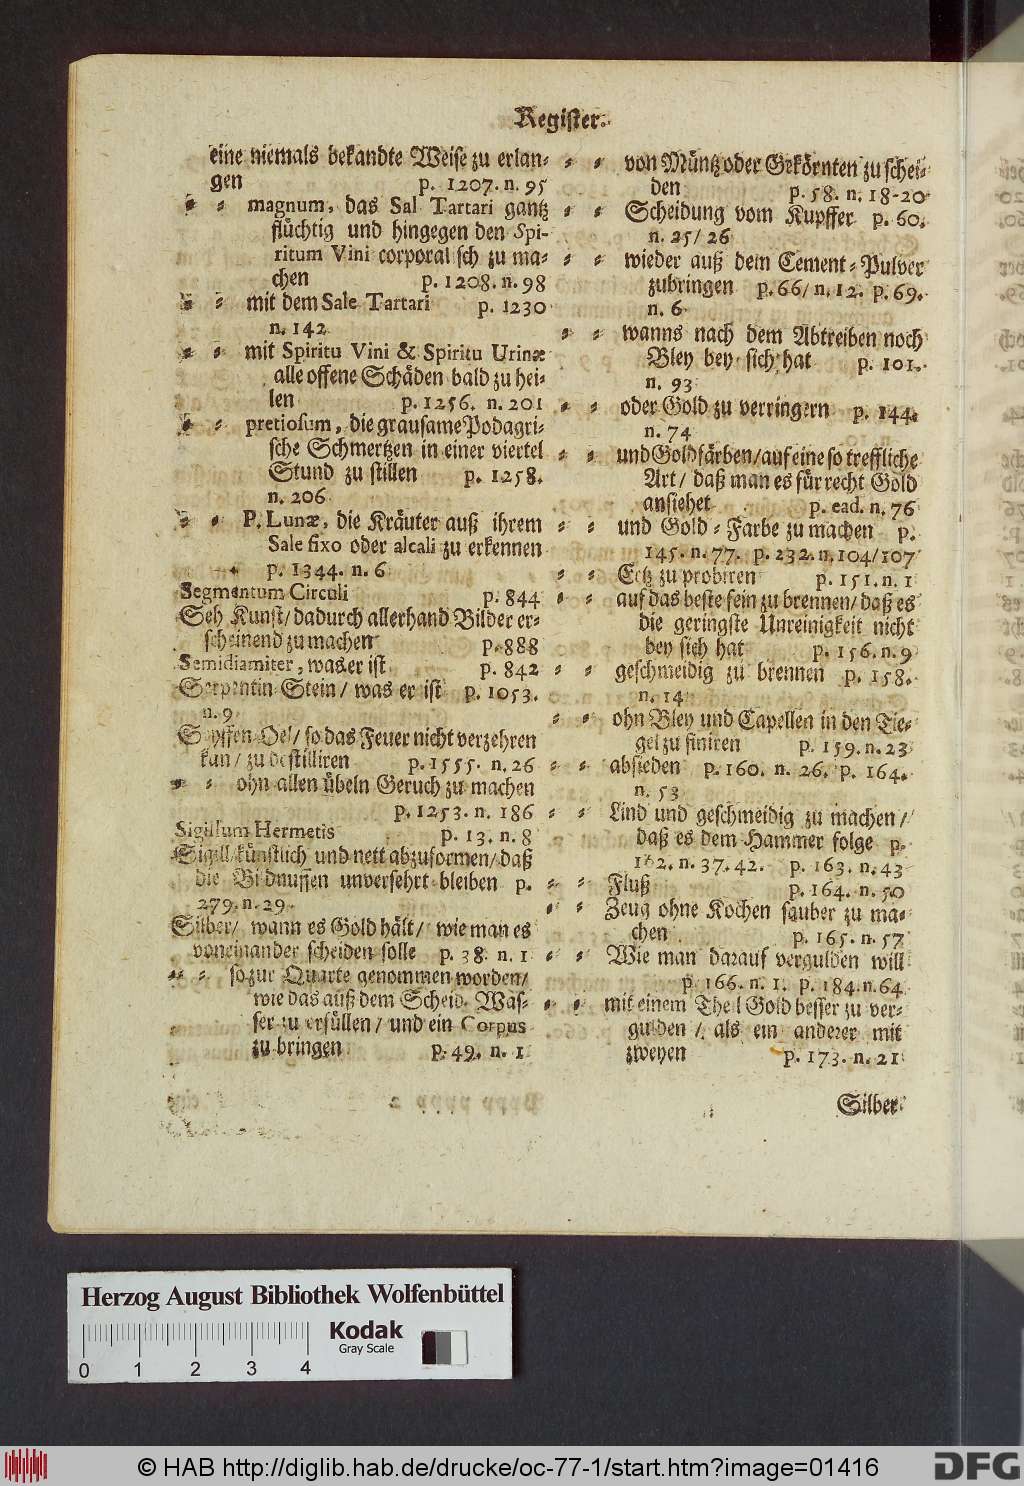 Register.
eine niemals bekandte Weise zu erlan-
gen p. 1207. n. 95
= = magnum, das Sal Tartari gantz
flüchtig und hingegen den Spi-
ritum Vini corporalisch zu ma-
chen p. 1208. n. 98
= = mit dem Sale Tartari p. 1230
n. 142
= = mit Spiritu Vini & Spiritu Urinæ
alle offene Schäden bald zu hei-
len p. 1256. n. 201
= = pretiosum, die grausame Podagri-
sche Schmertzen in einer viertel
Stund zu stillen p. 1258.
n. 206
= = P. Lunæ, die Kräuter auß ihrem
Sale fixo oder alcali zu erkennen
p. 1344. n. 6
Segmentum Circuli p. 844
Seh Kunst/ dadurch allerhand Bilder er-
scheinend zu machen p. 888
Semidiamiter, was er ist p. 842
Serpentin-Stein/ was er ist p. 1053.
n. 9
Seyffen-Oel/ so das Feuer nicht verzehren
kan/ zu destilliren p. 1555. n. 26
= = ohn allen übeln Geruch zu machen
p. 1253. n. 186
Sigillum Hermetis p. 13. n. 8
Sigill künstlich und nett abzuformen/ daß
die Bildnussen unversehrt bleiben p.
279. n. 29
Silber/ wann es Gold hält/ wie man es
voneinander scheiden solle p. 38. n. 1
= = so zur Quarte genommen worden/
wie das auß dem Scheid-Was-
ser zu ersüllen/ und ein Corpus
zu bringen p. 49. n. 1
= = von Müntz oder Gekörnten zu schei-
den p. 58. n. 18-20
= = Scheidung vom Kupffer p. 60.
n. 25/26
= = wieder auß dem Cement=Pulver
zubringen p. 66/ n. 12. p. 69.
n. 6
= = wanns nach dem Abtreiben noch
Bley bey sich hat p. 101.
n. 93
= = oder Gold zu verringern p. 144.
n. 74
= = und Goldfärben/ auf eine so treffliche
Art/ daß man es für recht Gold
ansiehet p. ead. n. 76
= = und Gold=Farbe zu machen p.
145. n. 77. p. 232. n. 104/107
= = Ertz zu probiren p. 151. n. 1
= = auf das beste fein zu brennen/ daß es
die geringste Unreinigkeit nicht
bey sich hat p. 156. n. 9
= = geschmeidig zu brennen p. 158.
n. 14
= = ohn Bley und Capellen in den Tie-
gel zu finiren p. 159. n. 23
= = absieden p. 160. n. 26. p. 164.
n. 53
= = Lind und geschmeidig zu machen/
daß es dem Hammer folge p.
162. n. 37. 42. p. 163. n. 43
= = Fluß p. 164. n. 50
= = Zeug ohne Kochen sauber zu ma-
chen p. 165. n. 57
= = Wie man darauf vergulden will
p. 166. n. 1. p. 184. n. 64
= = mit einem Theil Gold besser zu ver-
gulden/ als ein anderer mit
zweyen p. 173. n. 21
Silber
Herzog August Bibliothek Wolfenbüttel
Kodak
Gray Scale
0 1 2 3 4
© HAB http://diglib.hab.de/drucke/oc-77-1/start.htm?image=01416
DFG